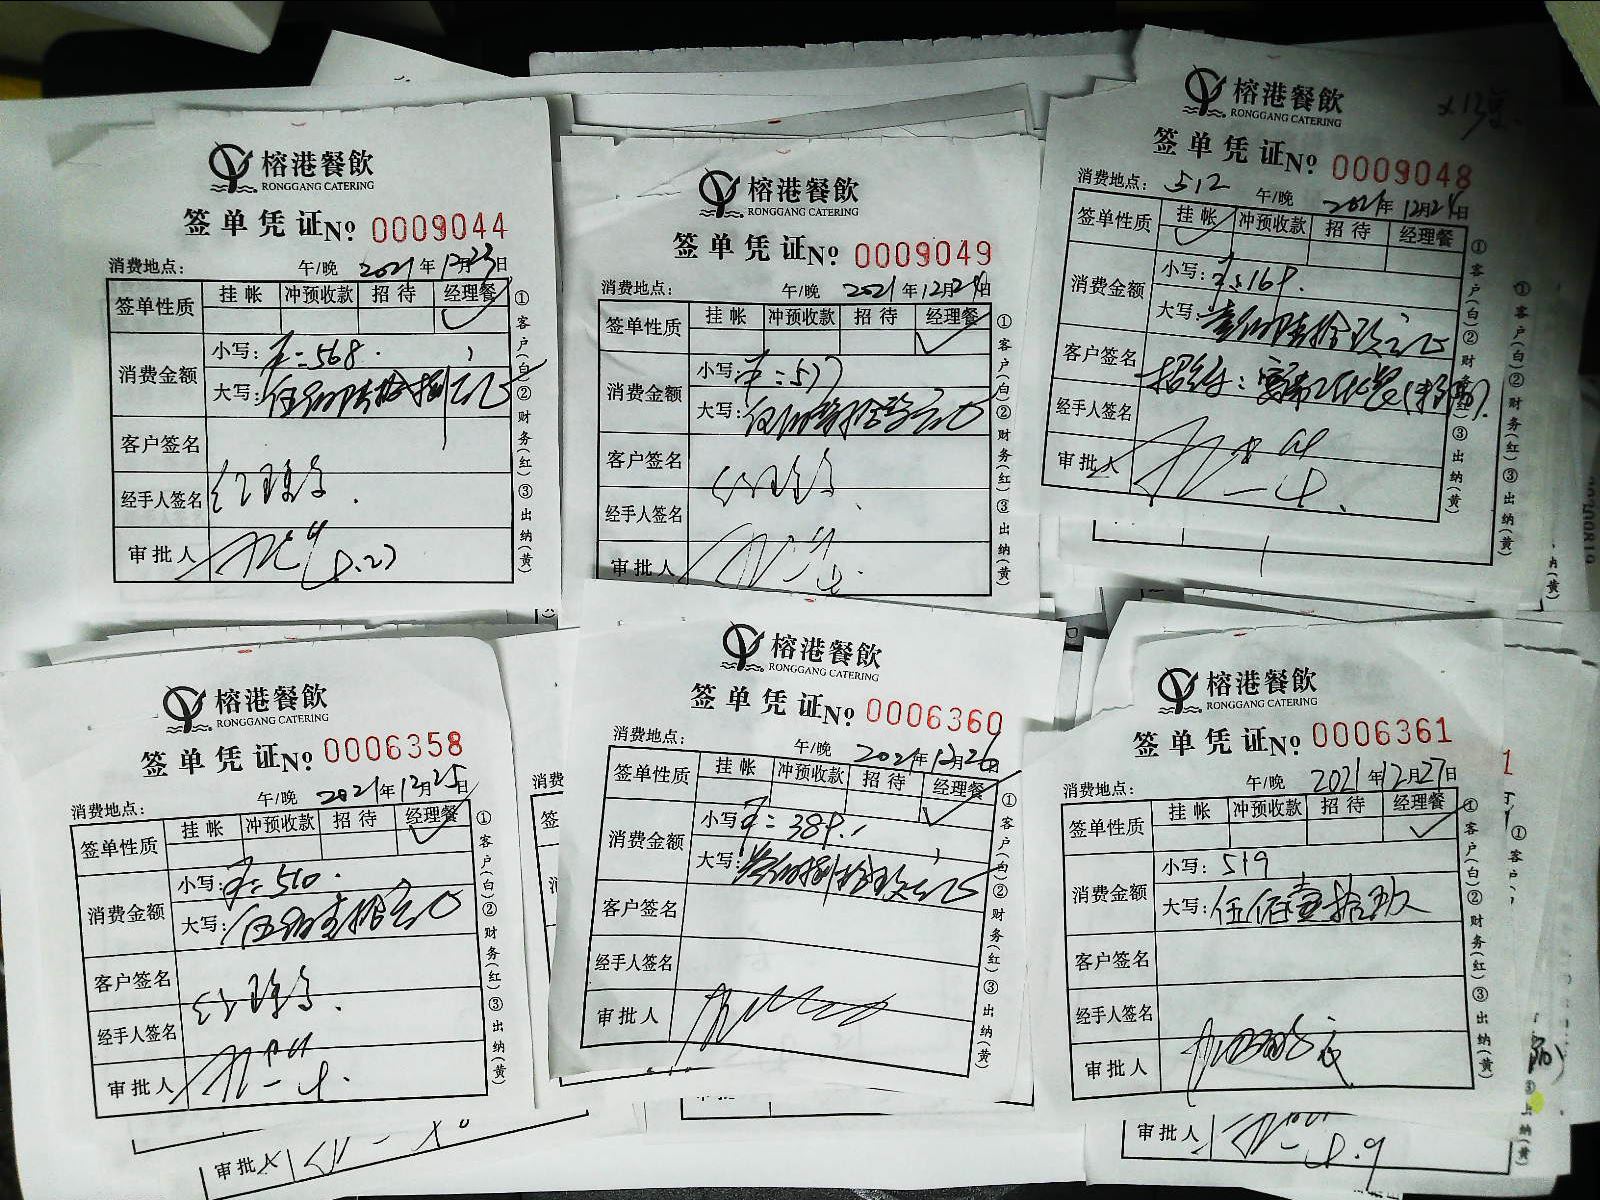 榕港餐飲
RONGGANG CATERING
签单凭证 № 0009044
消费地点: 午/晚 2021年12月23日
签单性质 挂帐 冲预收款 招待 经理餐
消费金额
小写: ¥=568.
大写: 伍佰陆拾捌元正
客户签名
经手人签名
审批人
①客户(白)②财务(红)③出纳(黄)
榕港餐飲
RONGGANG CATERING
签单凭证 № 0009049
消费地点: 午/晚 2021年12月24日
签单性质 挂帐 冲预收款 招待 经理餐
消费金额
小写: ¥=577
大写: 伍佰柒拾柒元正
客户签名
经手人签名
审批人
①客户(白)②财务(红)③出纳(黄)
榕港餐飲
RONGGANG CATERING
签单凭证 № 0009048
消费地点: 512 午/晚 2021年12月24日
签单性质 挂帐 冲预收款 招待 经理餐
消费金额
小写: ¥=169.
大写: 壹佰陆拾玖元正
客户签名
经手人签名
审批人
①客户(白)②财务(红)③出纳(黄)
①客户(白)②财务(红)③出纳(黄)
榕港餐飲
RONGGANG CATERING
签单凭证 № 0006358
消费地点: 午/晚 2021年12月25日
签单性质 挂帐 冲预收款 招待 经理餐
消费金额
小写: ¥=510.
大写: 伍佰壹拾元正
客户签名
经手人签名
审批人
①客户(白)②财务(红)③出纳(黄)
榕港餐飲
RONGGANG CATERING
签单凭证 № 0006360
消费地点: 午/晚 2021年12月26日
签单性质 挂帐 冲预收款 招待 经理餐
消费金额
小写: ¥=389.
大写: 叁佰捌拾玖元正
客户签名
经手人签名
审批人
①客户(白)②财务(红)③出纳(黄)
榕港餐飲
RONGGANG CATERING
签单凭证 № 0006361
消费地点: 午/晚 2021年12月27日
签单性质 挂帐 冲预收款 招待 经理餐
消费金额
小写: 519
大写: 伍佰壹拾玖
客户签名
经手人签名
审批人
①客户(白)②财务(红)③出纳(黄)
审批人
审批人